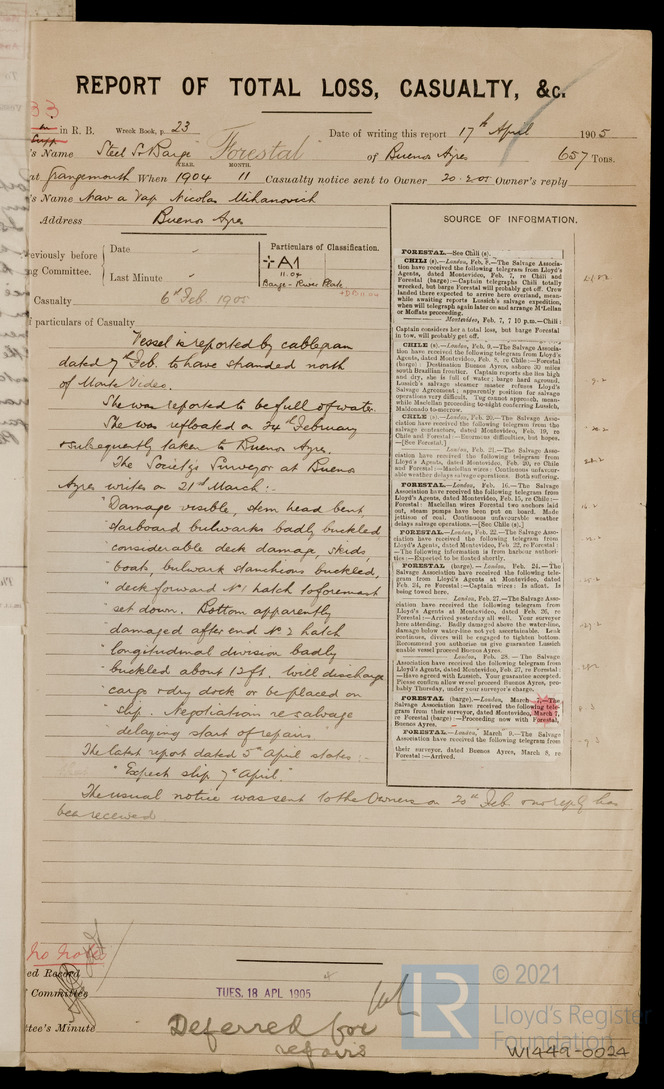 REPORT OF TOTAL LOSS, CASUALTY, &c.
33
in R. B. Wreck Book, p. 23
Date of writing this report 17th April 1905
's Name Steel Sr Barge Forestal of Buenos Ayres 657 Tons.
YEAR. MONTH.
at Grangemouth When 1904 11 Casualty notice sent to Owner 20.2.05 Owner's reply
's Name Nav a Vap Nicolas Mihanovich
Address Buenos Ayres
SOURCE OF INFORMATION.
eviously before
ng Committee.
Date -
Last Minute -
Particulars of Classification.
A1
11.04
Barge - River Plate
Casualty 6th Feb. 1905
f particulars of Casualty
Vessel is reported by cablegram
dated 7th Feb. to have stranded north
of Monte Video.
She was reported to be full of water.
She was refloated on 24th February
& subsequently taken to Buenos Ayres.
The Society's Surveyor at Buenos
Ayres writes on 21st March:-
"Damage visible, stem head bent
"starboard bulwarks badly buckled
"considerable deck damage, skids,
"boats, bulwark stanchions buckled,
"deck forward No 1 hatch to foremast
"set down. Bottom apparently
"damaged after end No 2 hatch
"longitudinal division badly
"buckled about 12ft. Will discharge
"cargo & dry dock or be placed on
"slip. Negotiations re salvage
delaying start of repairs.
The latest report dated 5th April states:-
"Expect slip 7th April."
The usual notice was sent to the Owners on 20th Feb. & no reply has
been received
FORESTAL.—See Chili (s).
CHILI (s).—London, Feb. 8.—The Salvage Associa-
tion have received the following telegram from Lloyd's
Agents, dated Montevideo, Feb. 7, re Chili and
Forestal (barge):—Captain telegraphs Chili totally
wrecked, but barge Forestal will probably get off. Crew
landed there expected to arrive here overland, mean-
while awaiting reports Lussich's salvage expedition,
when will telegraph again later on and arrange McLellan
or Moffats proceeding.
Montevideo, Feb. 7, 7 10 p.m.—Chili:
Captain considers her a total loss, but barge Forestal
in tow, will probably get off.
CHILE (s).—London, Feb. 9.—The Salvage Associa-
tion have received the following telegram from Lloyd's
Agents, dated Montevideo, Feb. 8, re Chile—Forestal
(barge): Destination Buenos Ayres, ashore 30 miles
south Brazilian frontier. Captain reports she lies high
and dry, she is full of water; barge hard aground.
Lussich's salvage steamer master refuses Lloyd's
Salvage Agreement; apparently position for salvage
operations very difficult. Tug cannot approach, mean-
while Maclellan proceeding to-night conferring Lussich,
Maldonado to-morrow.
CHILE (s).—London, Feb. 20.—The Salvage Asso-
ciation have received the following telegram from the
salvage contractors, dated Montevideo, Feb. 19, re
Chile and Forestal:—Enormous difficulties, but hopes.
—[See Forestal.]
London, Feb. 21.—The Salvage Asso-
ciation have received the following telegram from
Lloyd's Agents, dated Montevideo, Feb. 20, re Chile
and Forestal:—Maclellan wires: Continuous unfavour-
able weather delays salvage operations. Both suffering.
FORESTAL.—London, Feb. 16.—The Salvage
Association have received the following telegram from
Lloyd's Agents, dated Montevideo, Feb. 15, re Chile—
Forestal: Maclellan wires Forestal two anchors laid
out, steam pumps have been put on board. Made
jettison of coal. Continuous unfavourable weather
delays salvage operations.—[See Chile (s).]
FORESTAL.—London, Feb. 22.—The Salvage Asso-
ciation have received the following telegram from
Lloyd's Agents, dated Montevideo, Feb. 22, re Forestal:
—The following information is from harbour authori-
ties:—Expected to be floated shortly.
FORESTAL (barge).—London, Feb. 24.—The
Salvage Association have received the following tele-
gram from Lloyd's Agents at Montevideo, dated
Feb. 24, re Forestal:—Captain wires: Is afloat. Is
being towed here.
London, Feb. 27.—The Salvage Asso-
ciation have received the following telegram from
Lloyd's Agents at Montevideo, dated Feb. 26, re
Forestal:—Arrived yesterday all well. Your surveyor
here attending. Badly damaged above the water-line,
damage below water-line not yet ascertainable. Leak
continues, divers will be engaged to tighten bottom.
Recommend you authorise us give guarantee Lussich
enable vessel proceed Buenos Ayres.
London, Feb. 28.—The Salvage
Association have received the following telegram from
Lloyd's Agents, dated Montevideo, Feb. 27, re Forestal:
—Have agreed with Lussich. Your guarantee accepted.
Please confirm allow vessel proceed Buenos Ayres, pro-
bably Thursday, under your surveyor's charge.
FORESTAL (barge).—London, March 7.—The
Salvage Association have received the following tele-
gram from their surveyor, dated Montevideo, March 7,
re Forestal (barge):—Proceeding now with Forestal,
Buenos Ayres.
FORESTAL.—London, March 9.—The Salvage
Association have received the following telegram from
their surveyor, dated Buenos Ayres, March 8, re
Forestal:—Arrived.
ed Record
Committee
TUES. 18 APL 1905
ttee's Minute
Deferred for
repairs
LR
© 2021
Lloyd's Register
Foundation
W1449-0024